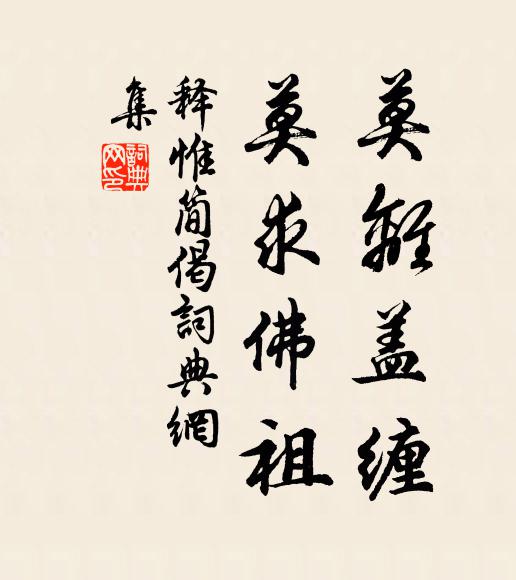 莫離盖缠
莫求佛祖
释惟简偈詞典網
集
詞典
网印